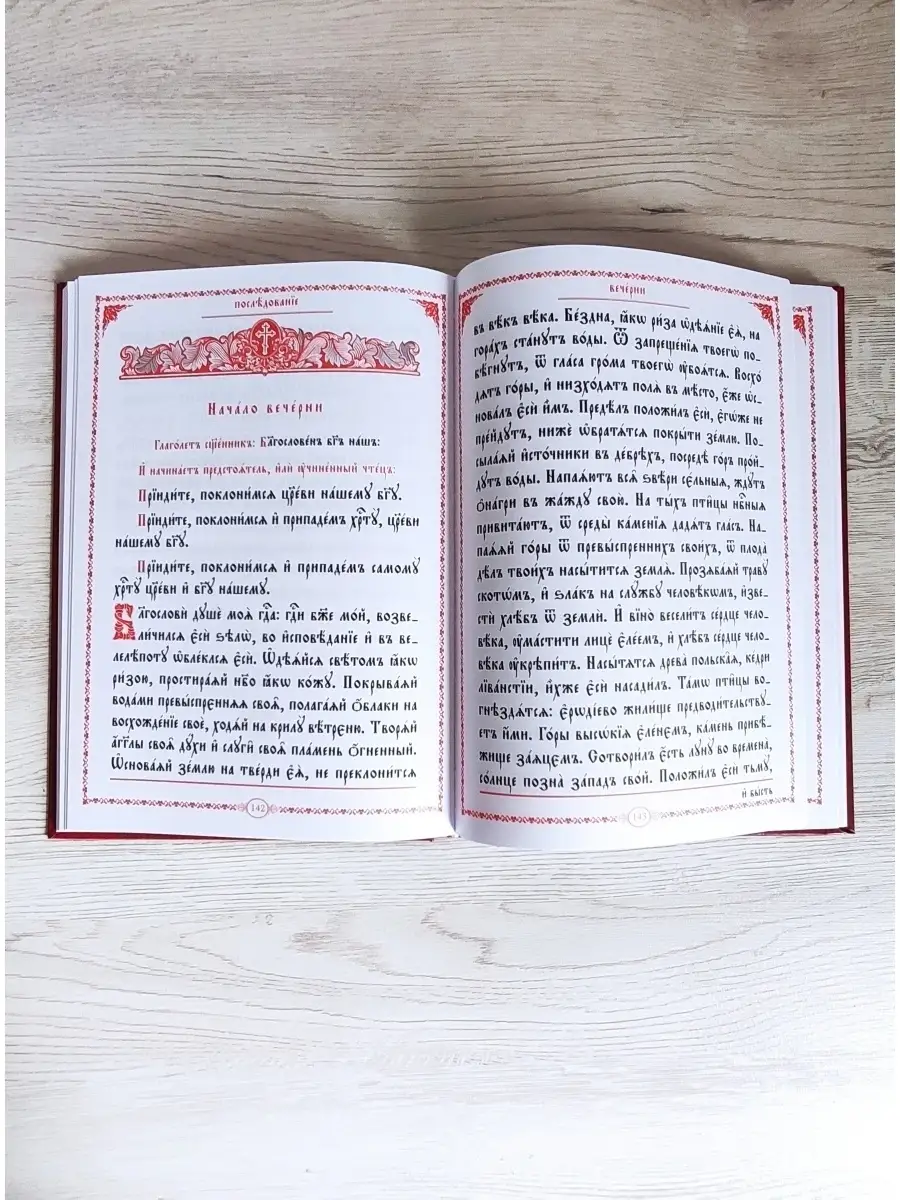 послѣ́дованїе
Нача́ло вече́рни
Глаго́летъ сщ҃е́нникъ: Бл҃гослове́нъ бг҃ъ на́шъ:
И҆ начина́етъ предстоѧ́тель, и҆лѝ ᲂу҆чине́нный чте́цъ:
Прїиди́те, поклони́мсѧ цр҃е́ви на́шемꙋ бг҃ꙋ.
Прїиди́те, поклони́мсѧ и҆ припаде́мъ хрⷭ҇тꙋ̀, цр҃е́ви
на́шемꙋ бг҃ꙋ.
Прїиди́те, поклони́мсѧ и҆ припаде́мъ самомꙋ̀
хрⷭ҇тꙋ̀ цр҃е́ви и҆ бг҃ꙋ на́шемꙋ.
Бл҃гословѝ дꙋшѐ моѧ̀ гдⷭ҇а: гдⷭ҇и бж҃е мо́й, возве-
ли́чилсѧ є҆сѝ ѕѣлѡ̀, во и҆сповѣ́данїе и҆ въ ве-
лелѣ́потꙋ ѡ҆бле́клсѧ є҆сѝ. Ѡ҆дѣѧ́йсѧ свѣ́томъ ꙗ҆́кѡ
ри́зою, простира́ѧй нб҃о ꙗ҆́кѡ ко́жꙋ. Покрыва́ѧй
вода́ми превы́спреннѧѧ своѧ̑, полага́ѧй ѻ҆́блаки на
восхожде́нїе своѐ, ходѧ́й на крилꙋ̀ вѣ́трєню. Творѧ́й
а҆́гг҃лы своѧ̑ дꙋ́хи и҆ слꙋги̑ своѧ̑ пла́мень ѻ҆́гненный.
Ѡ҆снова́ѧй зе́млю на тве́рди є҆ѧ̀, не преклони́тсѧ
142
вече́рни
въ вѣ́къ вѣ́ка. Бе́здна, ꙗ҆́кѡ ри́за ѡ҆дѣѧ́нїе є҆ѧ̀, на
гора́хъ ста́нꙋтъ во́ды. Ѿ запреще́нїѧ твоегѡ̀ по-
бѣ́гнꙋтъ, ѿ гла́са гро́ма твоегѡ̀ ᲂу҆боѧ́тсѧ. Восхо́-
дѧтъ го́ры, и҆ низхо́дѧтъ полѧ̀ въ мѣ́сто, є҆́же ѡ҆с-
нова́лъ є҆сѝ и҆̀мъ. Предѣ́лъ положи́лъ є҆сѝ, є҆гѡ́же не
пре́йдꙋтъ, нижѐ ѡ҆братѧ́тсѧ покры́ти зе́млю. По-
сыла́ѧй и҆сто́чники въ де́брехъ, посредѣ̀ го́ръ про́й-
дꙋтъ во́ды. Напаѧ́ютъ всѧ̑ ѕвѣ́ри сє́льныѧ, ждꙋ́тъ
ѻ҆на́гри въ жа́ждꙋ свою̀. На ты́хъ пти̑цы нбⷭ҇ныѧ
привита́ютъ, ѿ среды̀ ка́менїѧ дадѧ́тъ гла́съ. На-
паѧ́ѧй го́ры ѿ превы́спреннихъ свои́хъ, ѿ плода̀
дѣ́лъ твои́хъ насы́титсѧ землѧ̀. Прозѧба́ѧй травꙋ̀
ското́мъ, и҆ ѕла́къ на слꙋ́жбꙋ человѣ́кѡмъ, и҆зве-
стѝ хлѣ́бъ ѿ землѝ. И҆ вїно̀ весели́тъ се́рдце чело-
вѣ́ка, ᲂу҆масти́ти лицѐ є҆ле́емъ, и҆ хлѣ́бъ се́рдце чело-
вѣ́ка ᲂу҆крѣпи́тъ. Насы́тѧтсѧ древа̀ польска̑ѧ, ке́дри
лїва́нстїи, и҆̀хже є҆сѝ насади́лъ. Та́мѡ пти̑цы во-
гнѣздѧ́тсѧ: є҆рѡдїе́во жили́ще предводи́тельствꙋ-
етъ и҆́ми. Го́ры высѡ́кїѧ є҆ле́немъ, ка́мень прибѣ́-
жище за́ѧцемъ. Сотвори́лъ є҆́сть лꙋнꙋ̀ во времена̀,
со́лнце позна̀ за́падъ сво́й. Положи́лъ є҆сѝ тьмꙋ̀,
и҆ бы́сть
143